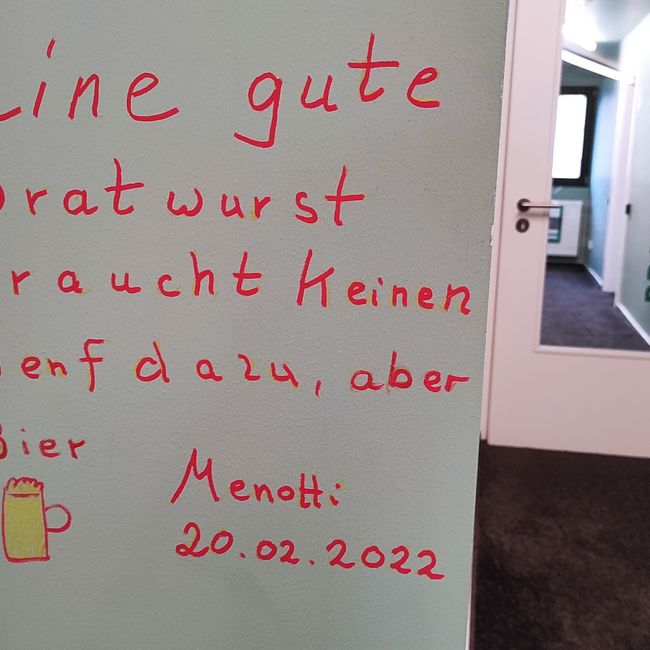 Eine gute
Bratwurst
raucht Keinen
enf dazu, aber
Bier
Menotti
20.02.2022